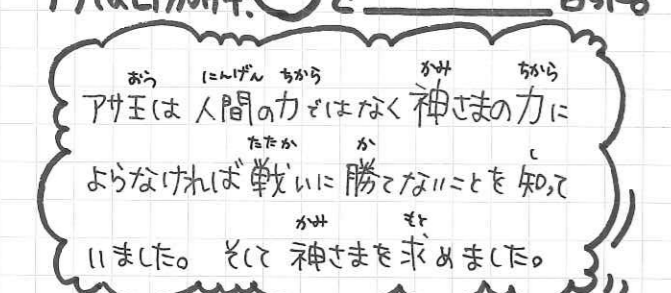 アサ王は 人間の力ではなく 神さまの力に
よらなければ 戦いに 勝てないことを 知って
いました。 そして 神さまを 求めました。